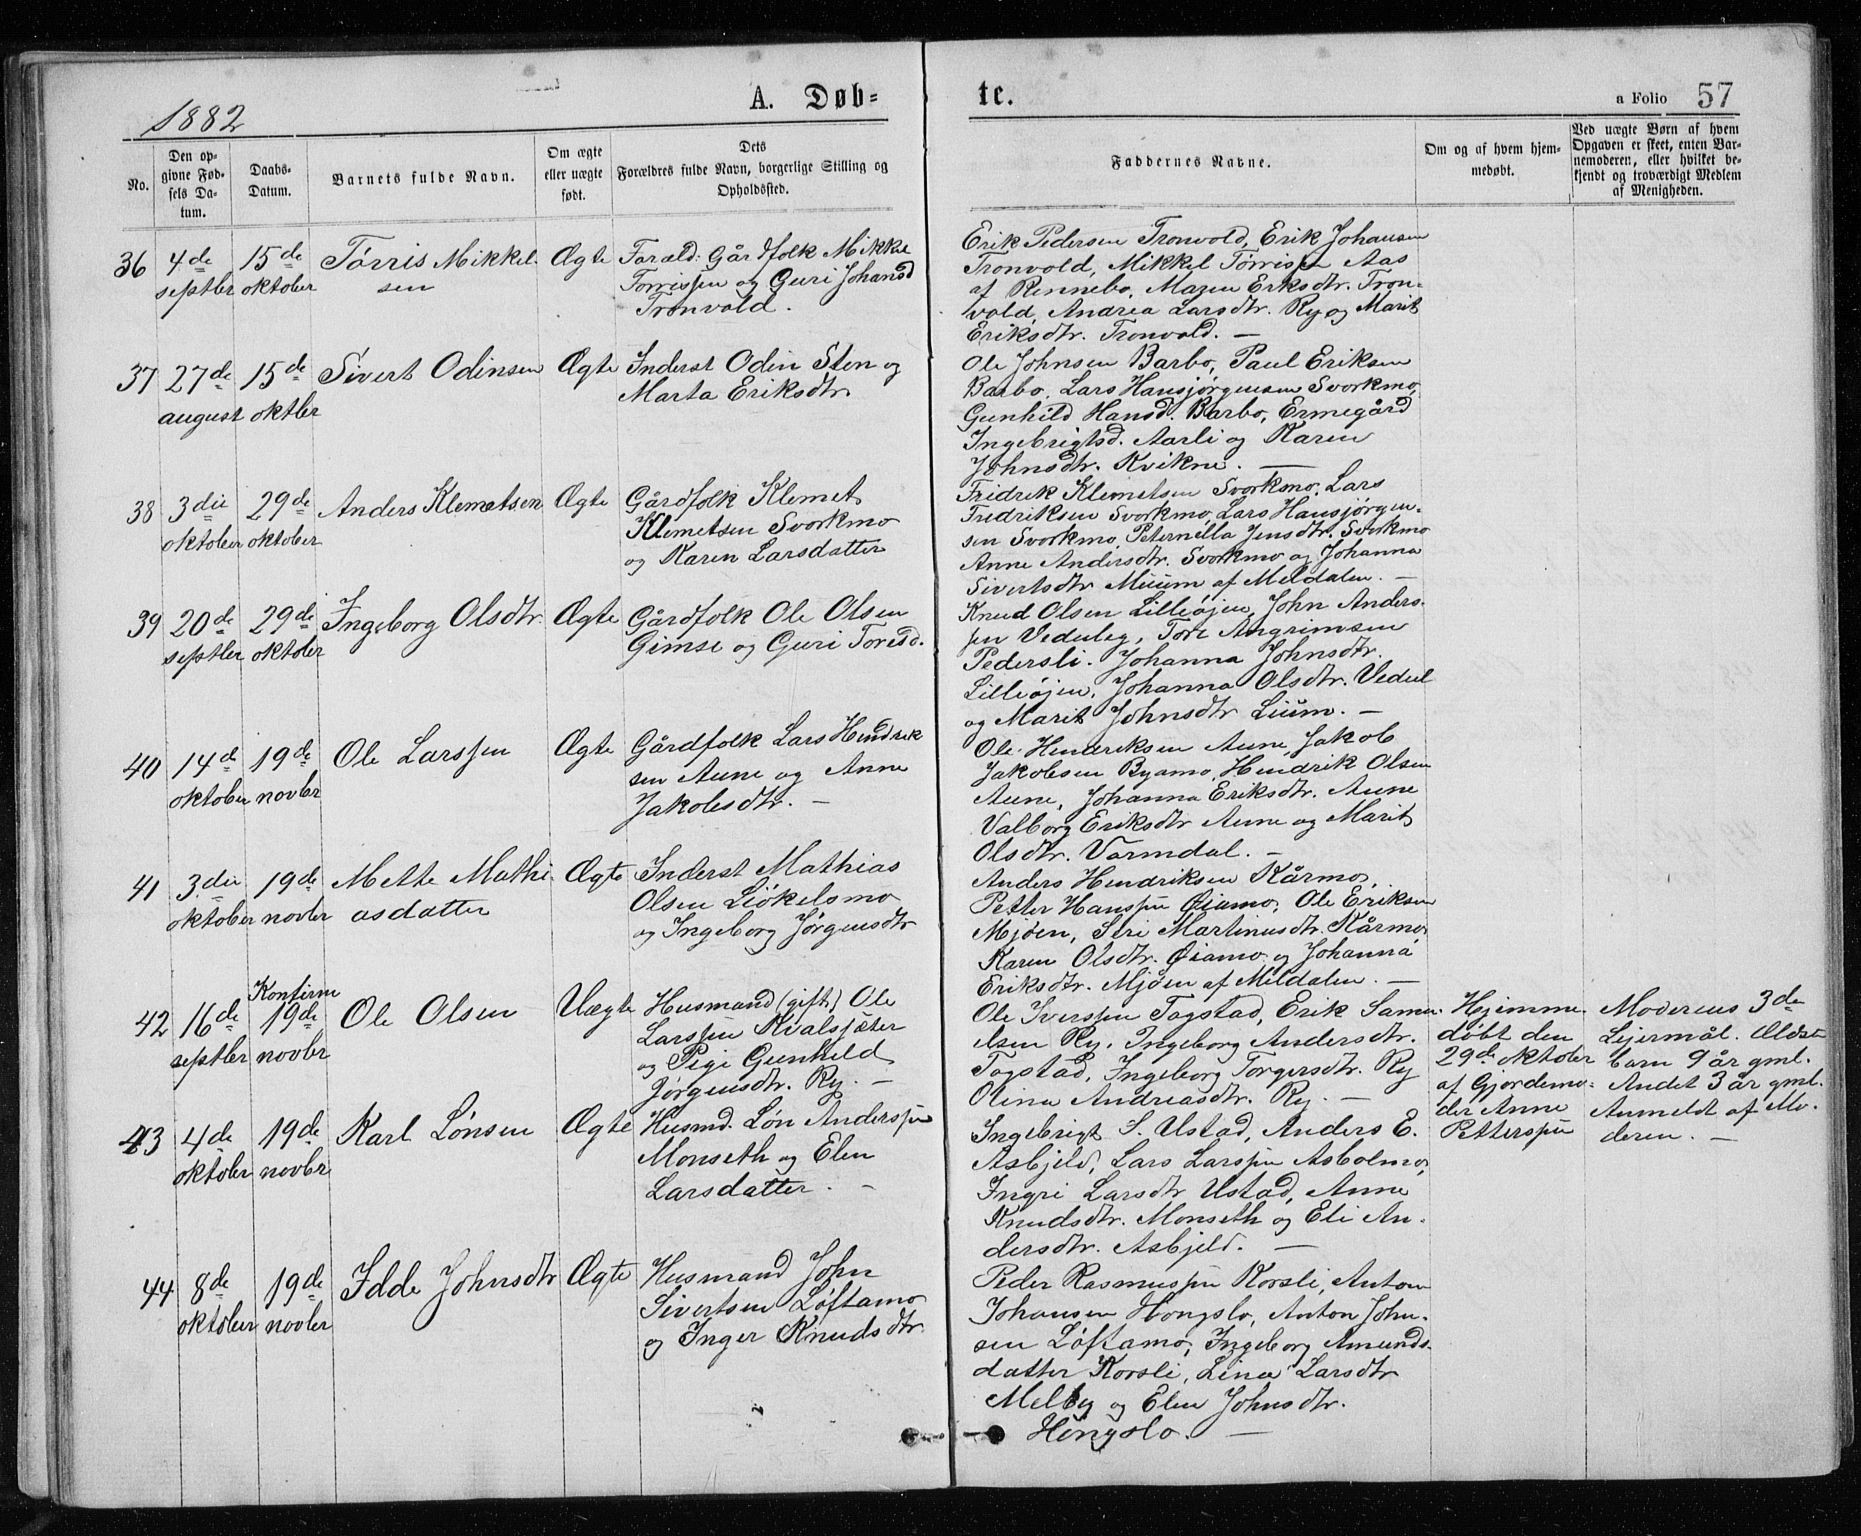 1882
A. Døb=
te.
a Folio 57
No.
Den op-
givne Fød-
sels Da-
tum.
Daabs-
Datum.
Barnets fulde Navn.
Om ægte
eller uægte
født.
Dets
Forældres fulde Navn, borgerlige Stilling og
Opholdssted.
Faddernes Navne.
Om og af hvem hjem-
medøbt.
Ved uægte Børn af hvem
Opgaven er skeet, enten Bar-
nemoderen, eller hvilket be-
kjendt og troværdigt Medlem
af Menigheden.
36
4de
septbr
15de
oktober
Tørris Mikkel-
sen
Ægte
Foræld: Gårdfolk Mikkel
Torrissen og Guri Johansd
Tronvold.
Erik Pedersen Tronvold, Erik Johansen
Tronvold, Mikkel Tørrissen Aas
af Rennebo, Maren Eriksdtr. Tron-
vold, Andrea Larsdtr. Ry og Marit
Eriksdtr. Tronvold. —
37
27de
august
15de
oktbr
Sivert Odinsen
Ægte
Inderst Odin Sten og
Marta Eriksdtr.
Ole Johnsen Barbo, Paul Eriksen
Barbo, Lars Hansjørgensen Svorkmo,
Gunhild Hansd. Barbo, Ermegård
Ingebrigtsd. Aarli og Karen
Johnsdtr. Kvikne. —
38
3die
oktober
29de
oktober
Anders Klemetsen
Ægte
Gårdfolk Klemet
Klemetsen Svorkmo
og Karen Larsdatter
Fridrik Klemetsen Svorkmo, Lars
Fredriksen Svorkmo, Lars Hansjørgen-
sen Svorkmo, Peternilla Jensdtr. Svorkmo
Anne Andersdtr. Svorkmo og Johanna
Sivertsdtr. Muum af Meldalen. —
39
20de
septbr
29de
oktober
Ingeborg Olsdtr
Ægte
Gårdfolk Ole Olsen
Gimse og Guri Toresd.
Knud Olsen Lilleøjen, John Anders-
sen Veduleg, Tore Angrimsen
Pedersli. Johanna Johnsdtr.
Lilleøjen, Johanna Olsdtr. Vedul
og Marit Johnsdtr Lium. —
40
14de
oktober
19de
novbr
Ole Larssen
Ægte
Gårdfolk Lars Hendrik
sen Aune og Anne
Jakobsdtr. —
Ole Hendriksen Aune, Jakob
Jakobsen Byamo, Hendrik Olsen
Aune, Johanna Eriksdtr. Aune
Valborg Eriksdtr Aune og Marit
Olsdtr. Varmdal. —
41
3die
oktober
19de
novbr
Mette Mathi-
asdatter
Ægte
Inderst Mathias
Olsen Liøkelsmo
og Ingeborg Jørgensdtr
Anders Hendriksen Kårmo,
Petter Hanssen Øiamo, Ole Eriksen
Mjøen, Seri Martinusdtr. Kårmo,
Karen Olsdtr. Øiamo og Johanna
Eriksdtr. Mjøen af Meldalen. —
42
16de
septbr
Konfirm
19de
novbr
Ole Olsen
Uægte
Husmand (gift) Ole
Larssen Kvalsjøter
og Pige Gunhild
Jørgensdtr. Ry. —
Ole Iverssen Togstad, Erik Samu-
elsen Ry, Ingeborg Andersdtr.
Togstad, Ingeborg Torgersdtr. Ry
Olina Andreasdtr. Ry. —
Hjemme-
døbt den
29de oktober
af Gjordemo-
der Anne
Petterssen
Moderens 3de
Lejermål. Ældste
barn 9 år gml.
Andet 3 år gml.
Anmeldt af Mo-
deren. —
43
4de
oktober
19de
novbr
Karl Lønsen
Ægte
Husmd. Løn Anderssen
Monseth og Elen
Larsdatter. —
Ingebrigt S. Ustad, Anders E.
Asbjeld, Lars Larssen Asbolmo,
Ingri Larsdtr Ustad, Anne
Knudsdtr. Monseth og Eli An-
dersdtr. Asbjeld. —
44
8de
oktober
19de
novbr
Idde Johnsdtr
Ægte
Husmand John
Sivertsen Løftamo
og Inger Knudsdtr.
Peder Rasmussen Korsli, Anton
Johansen Hongslo, Anton John-
sen Løftamo, Ingeborg Amunds-
datter Korsli, Lina Larsdtr
Melby og Elen Johnsdtr.
Hongslo. —